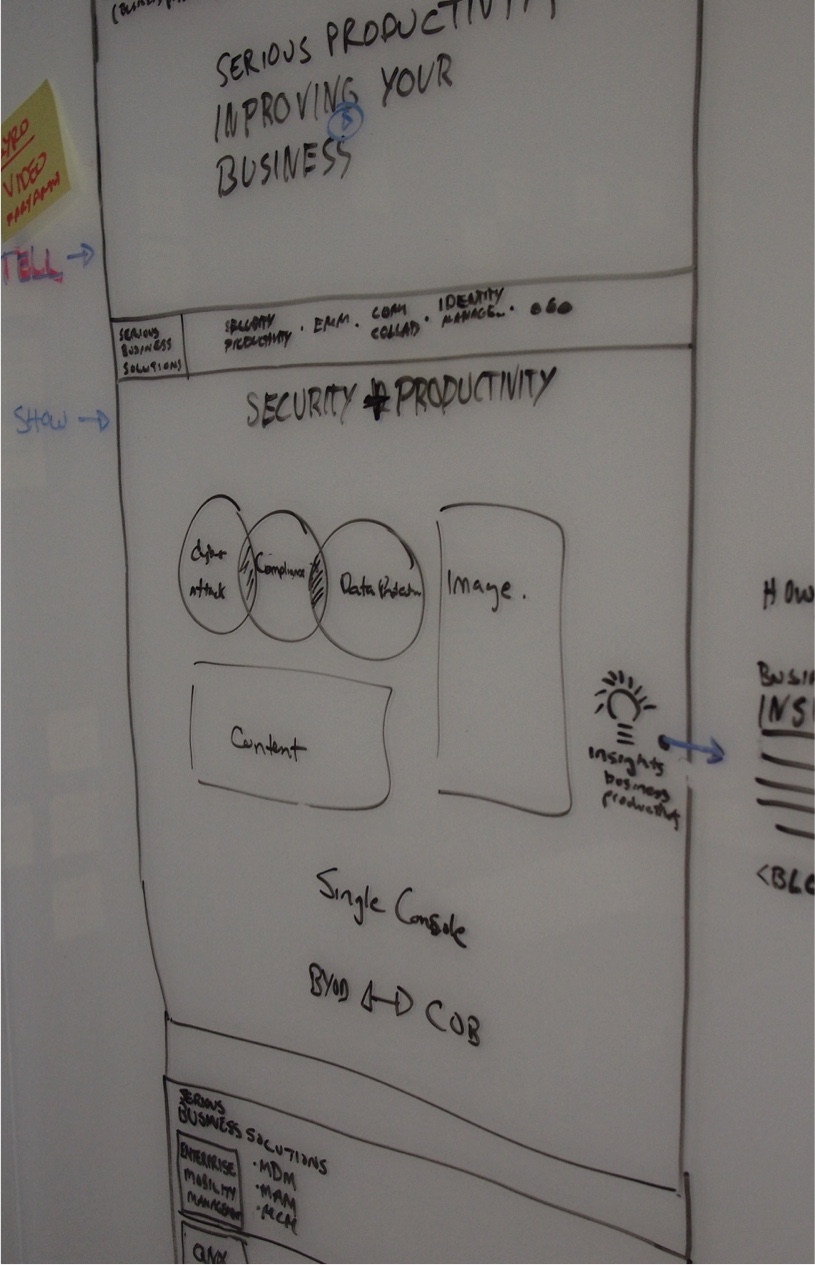 SERIOUS PRODUCTIVITY
INPROVING YOUR
BUSINESS
VIDEO
TELL →
SERIOUS
BUSINESS
SOLUTIONS
SECURITY
PRODUCTIVITY
· EMM ·
COM
COLLAB ·
IDENTITY
MANAGE.. ·
SHOW →
SECURITY + PRODUCTIVITY
Cyber
attack
Compliance
Data Protection
Image.
Content
Insights
business
productivity
HOW
BUSI
INSI
<BLO
Single Console
BYOD ↔ COB
SERIOUS
BUSINESS SOLUTIONS
ENTERPRISE
MOBILITY
MANAGEMENT
· MDM
· MAM
· MCM
QNX